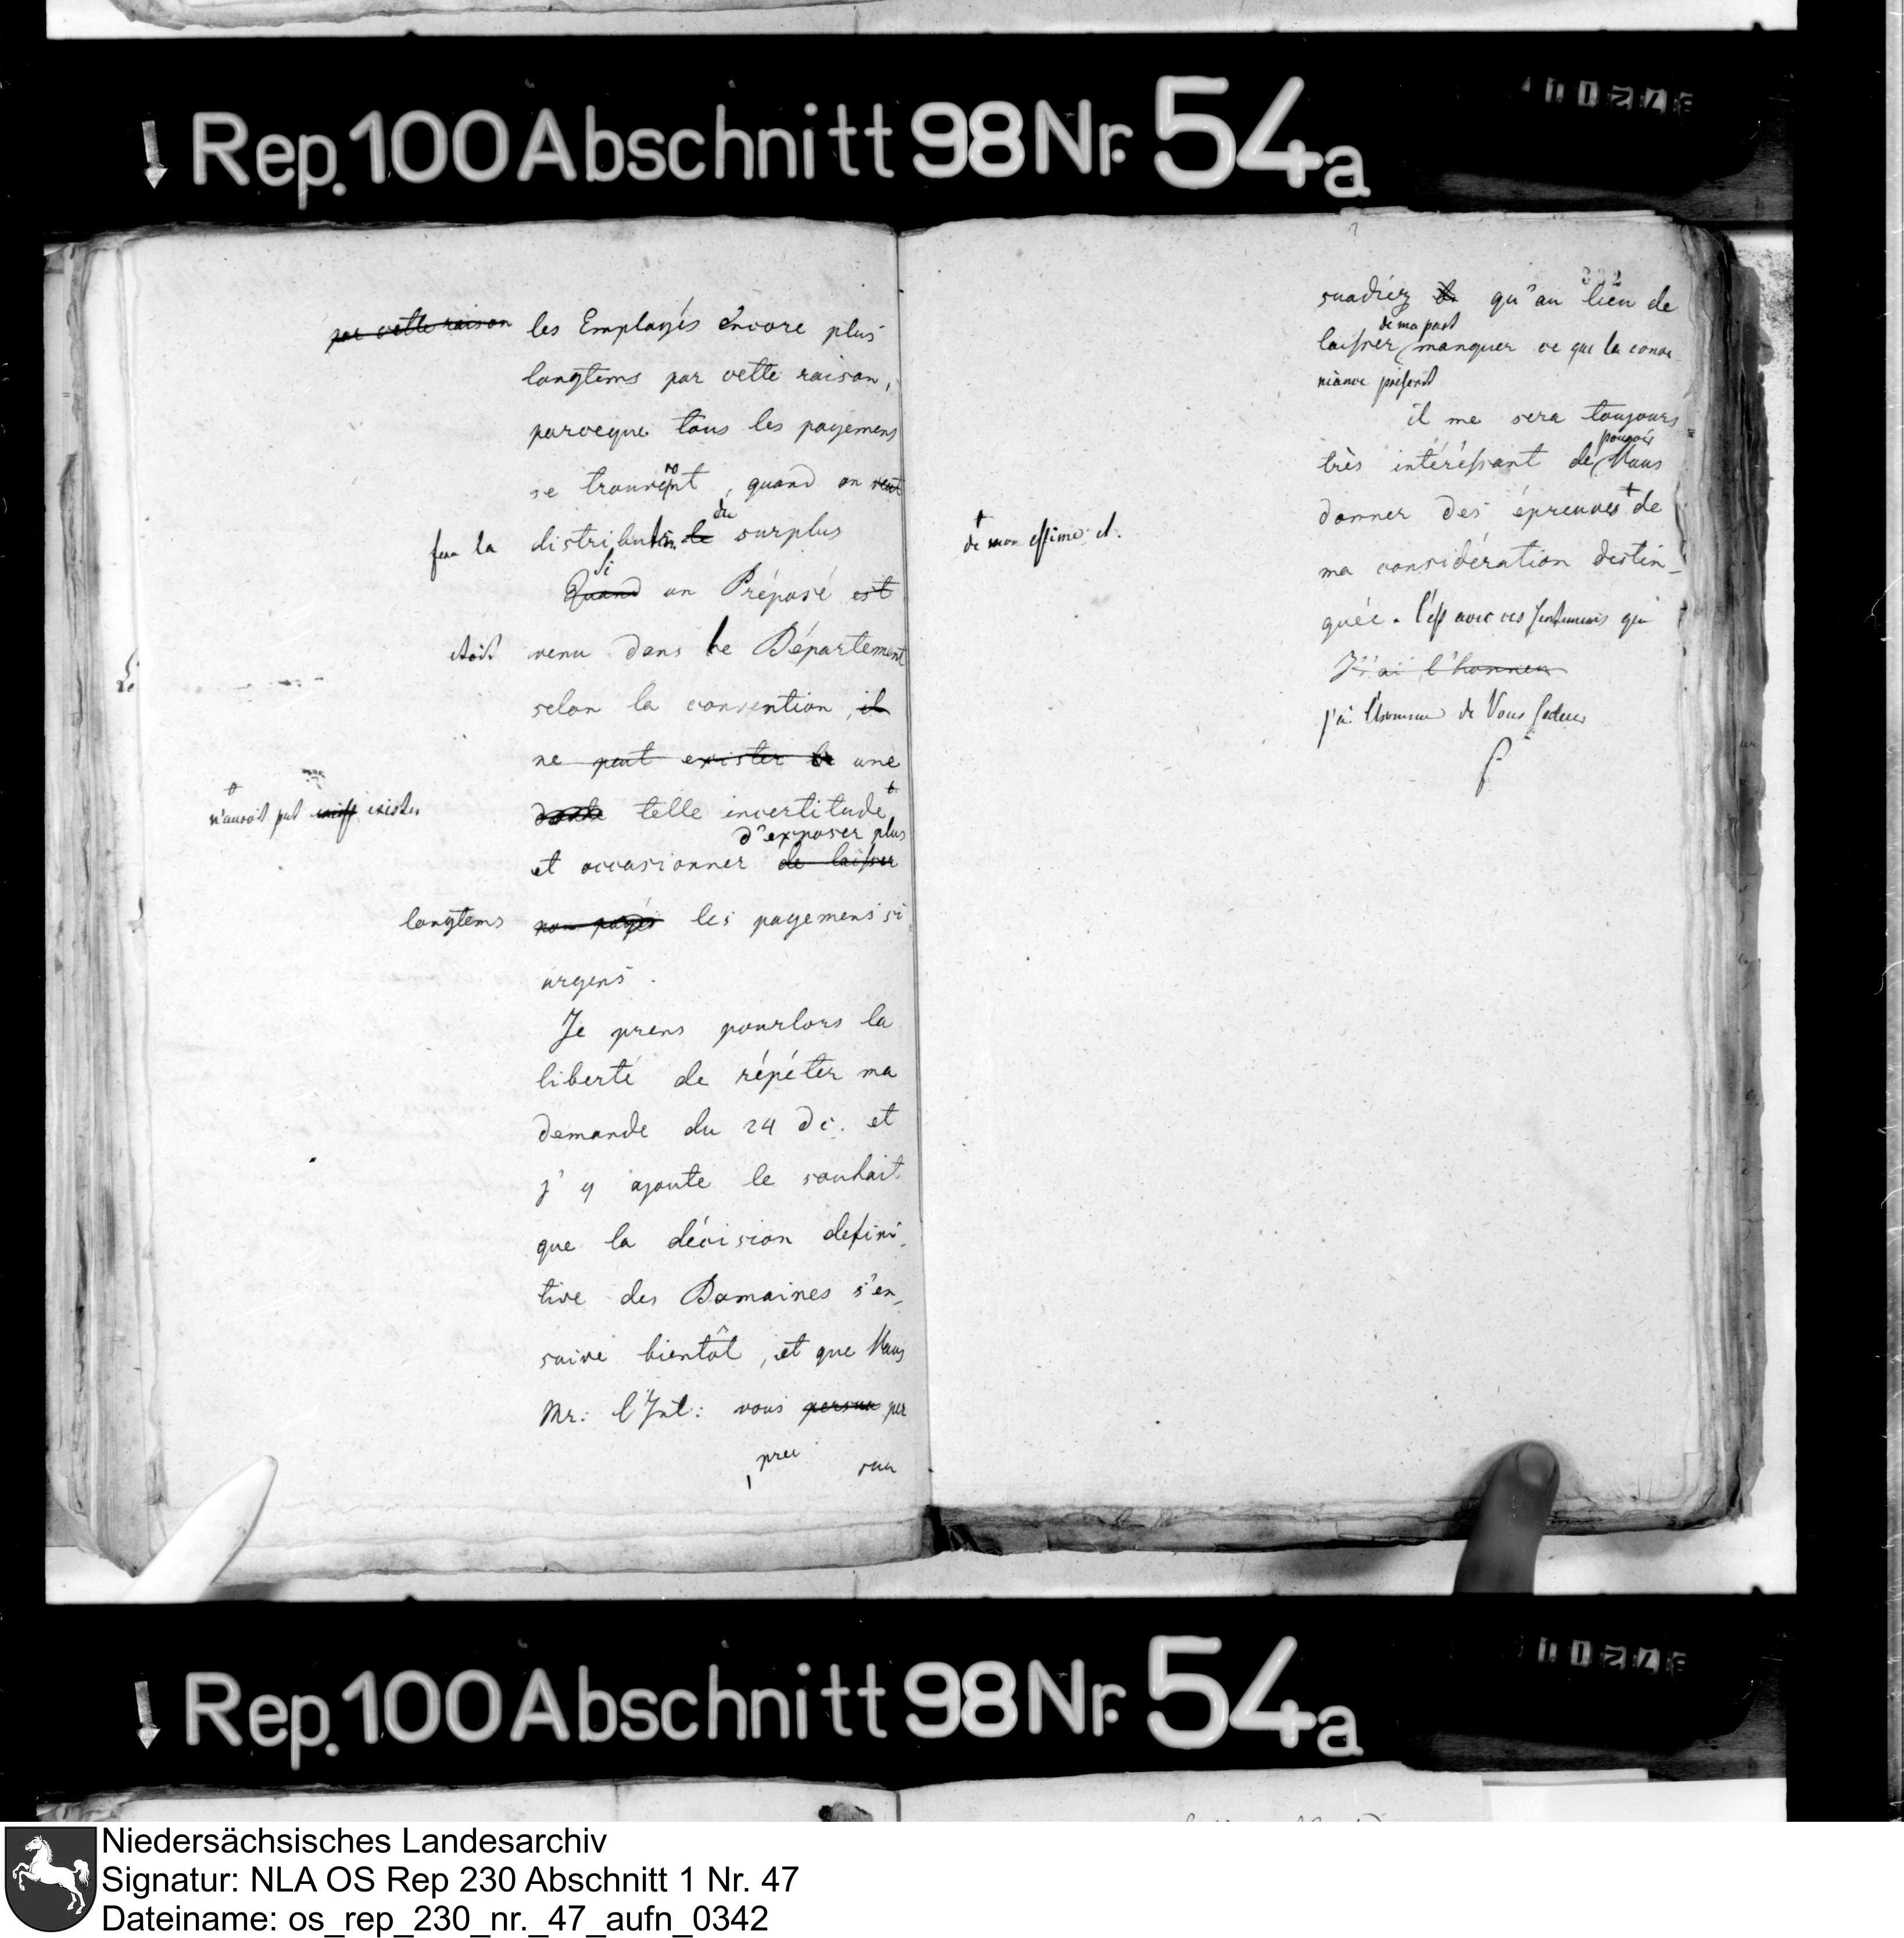 Rep. 100 Abschnitt 98 Nr. 54a
par cette raison les Employés encore plus
longtems par cette raison,
parceque tous les payemens
se trouvent, quand on veut
la distribution le du surplus
Quand Si un Préposé est
etoit venu dans le Département
selon la convention, il
ne peut exister une
telle incertitude +
+ n'auroit put exister
et occasionner de laisser d'exposer plus
longtems non payés les payemens si
urgens.
Je prens pourlors la
liberté de répéter ma
demande du 24 Dc. et
j'y ajoute le souhait
que la décision defini-
tive des Domaines s'en-
suive bientôt, et que Vous
Mr: l'Int: vous persua per
sua
332
suadiez qu'au lieu de
laisser de ma part manquer ce que la conve-
niance
il me sera toujours
très intéressant de pouvoir Vous
donner des épreuves + de
+ de mon estime et
ma considération distin-
guée. C'est avec ces sentimens que
J'ai l'honneur
j'ai l'honneur de Vous saluer
Rep. 100 Abschnitt 98 Nr. 54a
Niedersächsisches Landesarchiv
Signatur: NLA OS Rep 230 Abschnitt 1 Nr. 47
Dateiname: os_rep_230_nr._47_aufn_0342